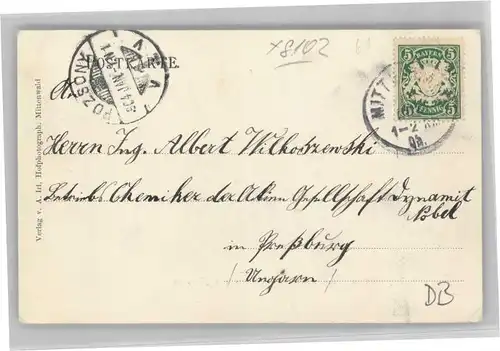 x8102
POSTKARTE.
POZSONY
904 JAN
BAYERN
5 5
5 PFENNIG 5
MITT
1-2
04.
An
Herrn Ing. Albert Witkoszewski
Betriebs Chemiker der Aktien Gesellschaft Dynamit
Nobel
in Preßburg
/Ungarn/
DB
Verlag v. A. Irl, Hofphotograph, Mittenwald